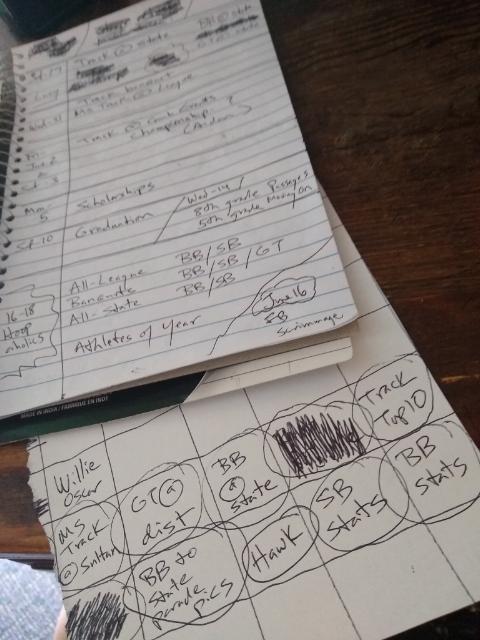 BB @ state
Track @ state
Track banquet
MS Track @ League
Track @ Grants
Championship
(Aidan)
Scholarships
Graduation
Wed-14
8th grade Passages
5th grade Moving On
St. 10
All-League BB/SB
Banquets BB/SB/GT
All-State BB/SB
16-18
Hoop
aholics
Athletes of Year
June 16
SB
Scrimmage
MADE IN INDIA / FABRIQUE EN INDE
Willie
Oscar
BB
@
state
Track
Top 10
MS
Track
@ Sultan
GT @
dist
SB
stats
BB
stats
BB to
state
parade
pics
Hawk